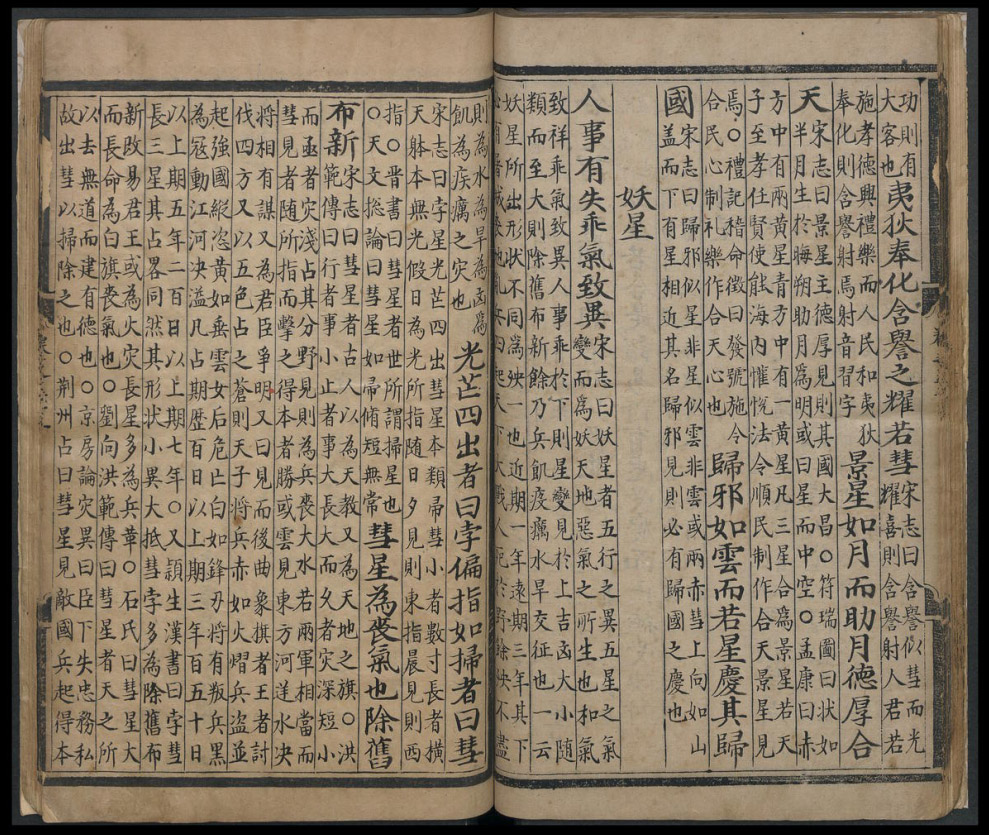 功則有
大客也
夷狄奉化含譽之耀若彗
宋志曰含譽似彗而光
耀喜則含譽射人君若
施孝德興禮樂而人民和夷狄
奉化則含譽射焉射音習字
景星如月而助月德厚合
天
宋志曰景星主德厚見則其國大昌○符瑞圖曰状如
半月生於晦朔助月爲明或曰星而中空○孟康曰赤
方中有兩黃星青方中有一黃星凡三星合爲景星若天
子至孝任賢使能海内懽悅法令順民制作合天景星見
焉○禮記稽命徵曰發號施令
合民心制礼樂作合天心也
歸邪如雲而若星慶其歸
國
宋志曰歸邪似星非星似雲非雲或兩赤彗上向如山
盖而下有星相近其名歸邪見則必有歸國之慶也
妖星
人事有失乖氣致異
宋志曰妖星者五行之異五星之氣
變而爲妖天地惡氣之所生也和氣
致祥乖氣致異人事乖於下則星變見於上吉凶大小隨
類而至大則除舊布新餘乃兵飢疫癘水旱交征也一云
妖星所出形状不同為殃一也近期一年遠期三年其下
地乱兵四起天下大戰人死於野餘殃不盡
則為水為旱為凶爲
飢為疾癘之灾也
光芒四出者曰孛偏指如掃者曰彗
宋志曰孛星光芒四出彗星本類帚彗小者數寸長者橫
天躰本無光假日為光所指隨日夕見則東指晨見則西
指○晋書曰彗星者世所謂掃星也
○天文総論曰彗星如帚脩短無常
彗星為喪氣也除舊
布新
宋志曰彗星者古人以為天教又為天地之旗○洪
範傳曰行者事小止者事大長大而久者灾深短小
而亟者灾淺占其分野見則為兵喪大水若兩軍相當而
彗見者隨所指而擊之得本者勝或雲見東方河逆水决
將相有謀又為君臣爭明又曰見而後曲象旗者王者討
伐四方又以五色占之蒼則天子將兵赤如火熠兵盜並
起強國縱恣黃如垂雲女后危亡白如鋒刃將有叛兵黑
為寇動江河决溢凡占期歷百日以上期三年百五十日
以上期五年二百日以上期七年○又頴生漢書曰孛彗
長三星其占畧同然其形状小異大抵彗孛多為除舊布
新改易君王或為火灾長星多為兵革○石氏曰彗星大
而長命為白旗喪氣也○劉向洪範傳曰彗星者天之所
以去無道而建有德也○京房論灾異曰臣下失忠務私
故出彗以掃除之也○荆州占曰彗星見敵國兵起得本